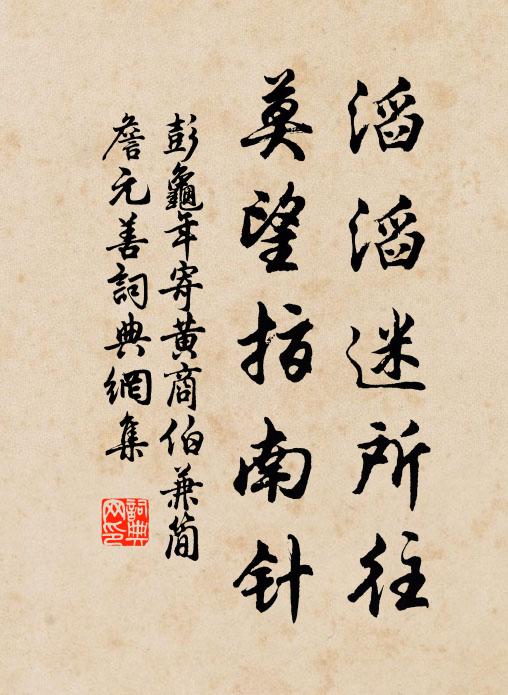 滔滔迷所往
莫望指南针
彭龜年寄黄商伯兼简
詹元善詞典網集
詞典网印